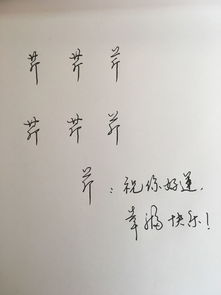 芹 芹 芹
芹 芹 芹
芹：祝你好运.
幸福快乐！